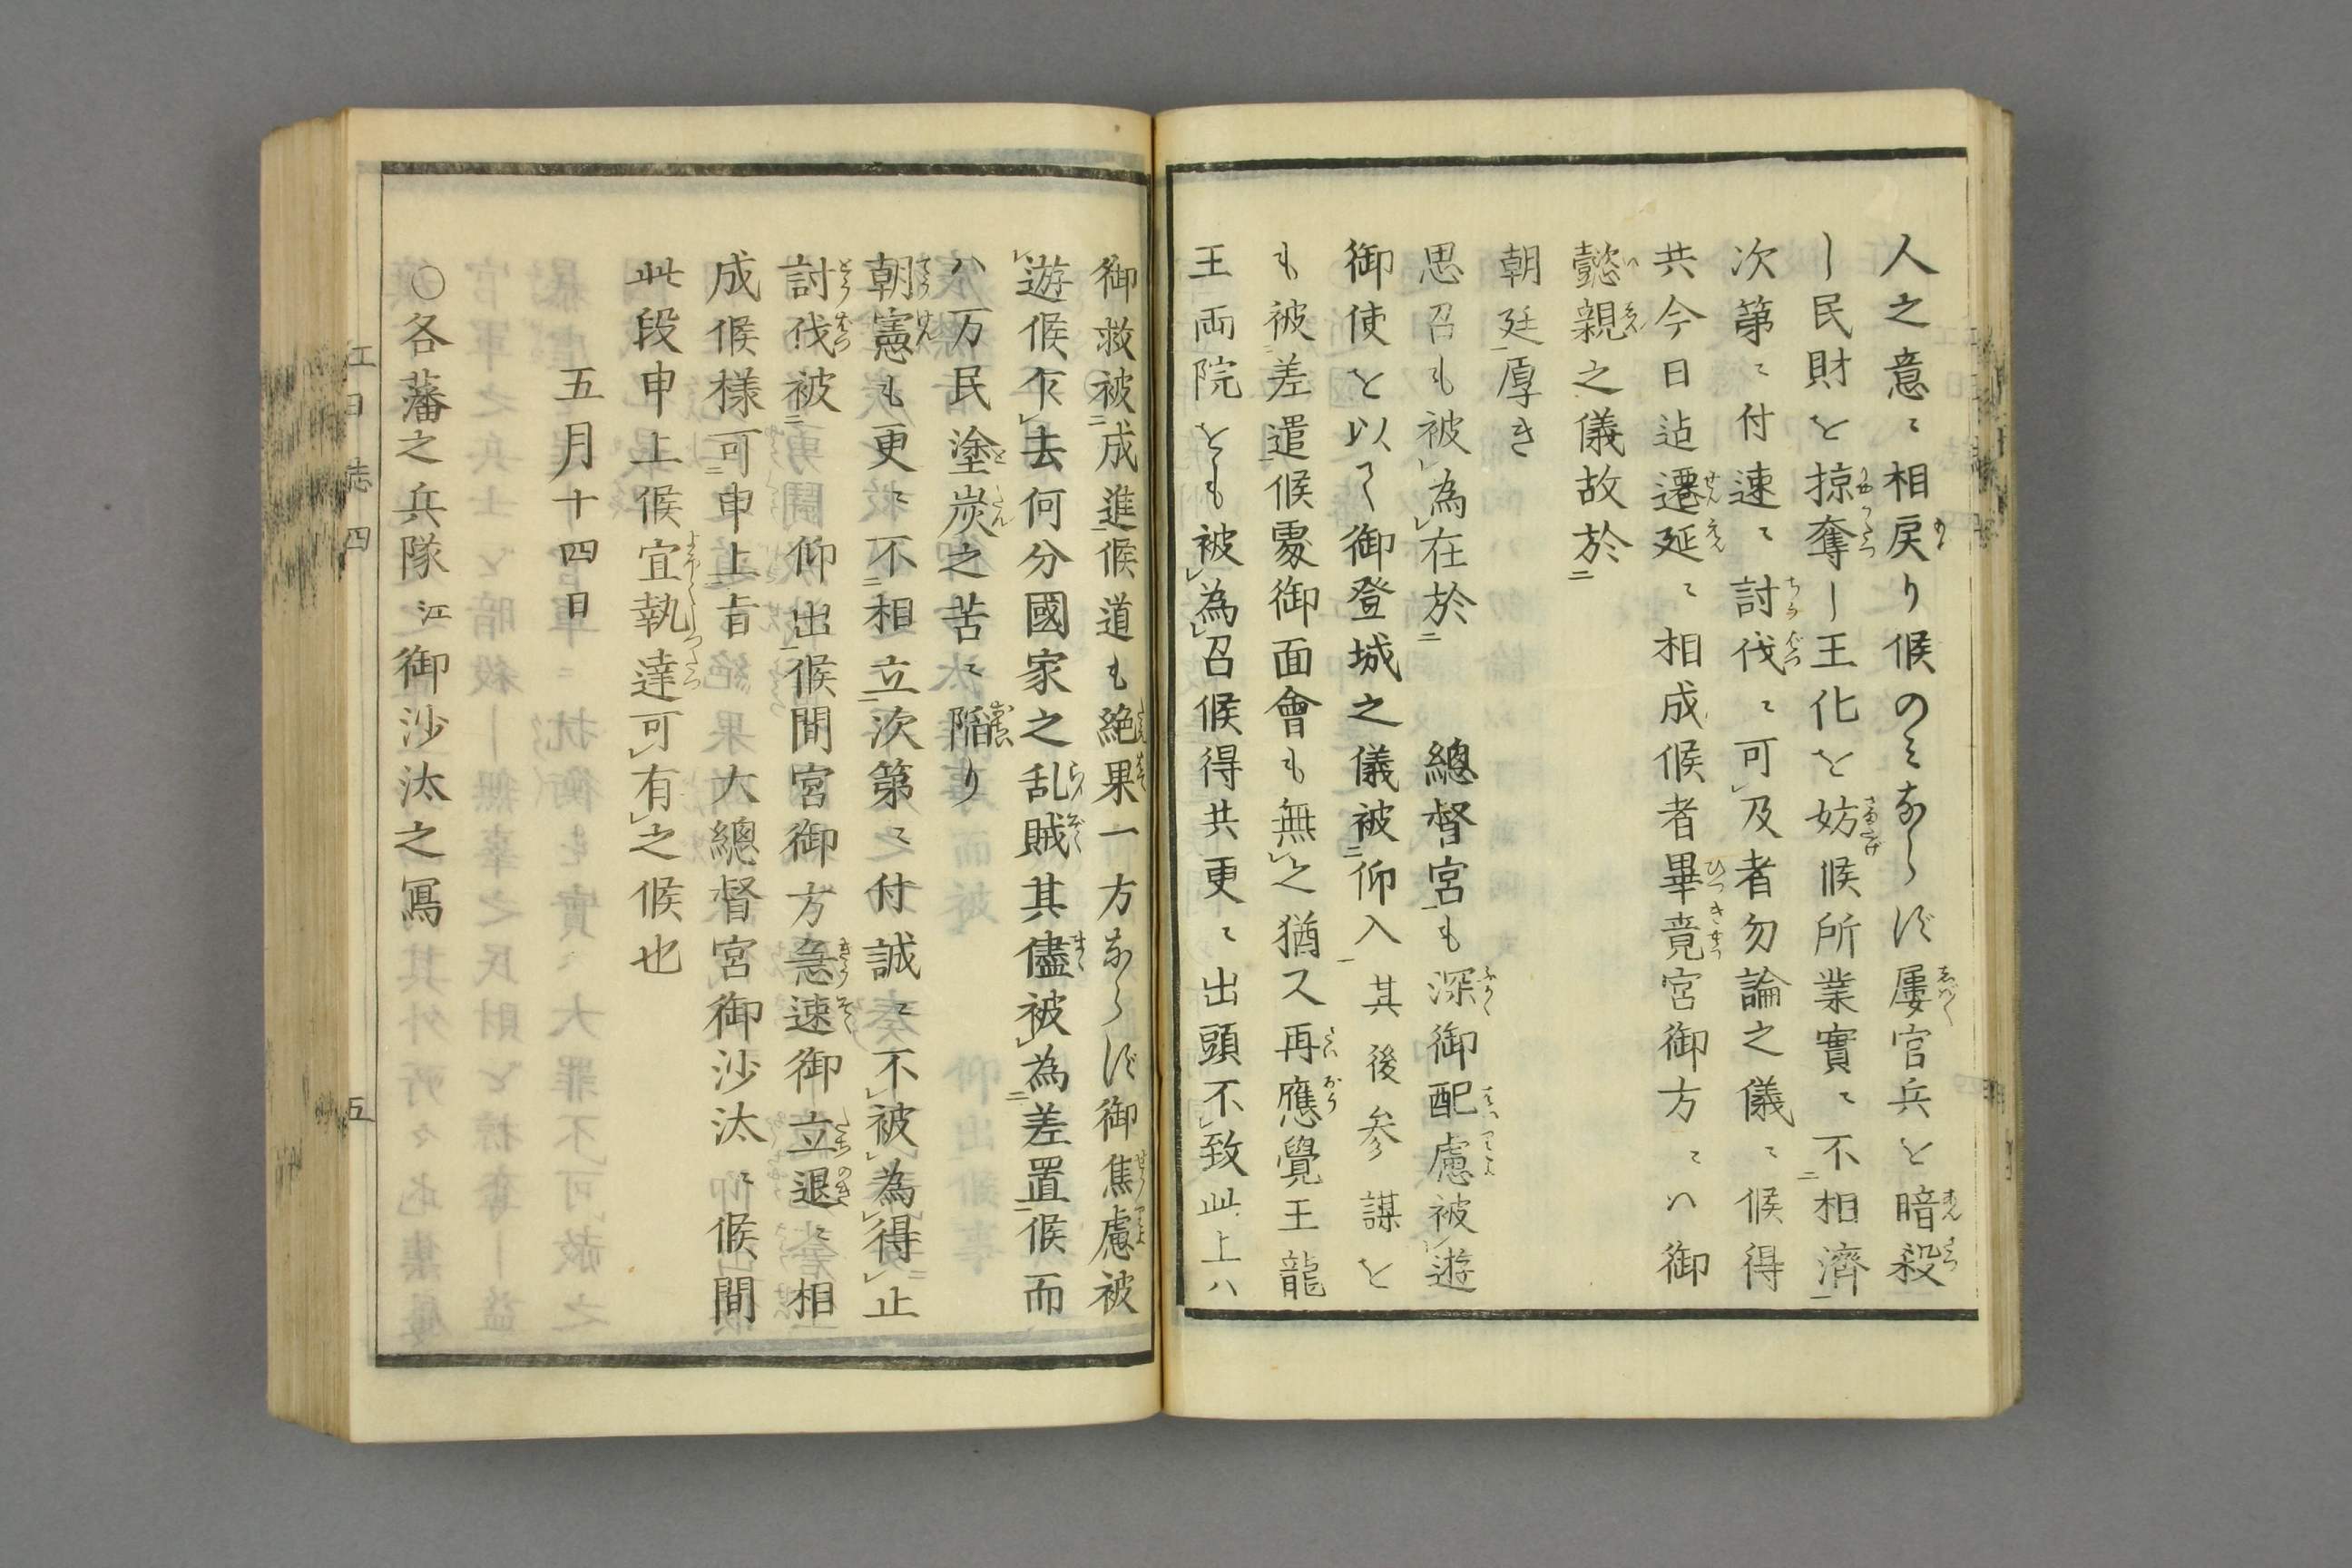 人之意ニ相戻り候のミならず屢官兵を暗殺
し民財を掠奪し王化を妨候所業實ニ不相濟
次第ニ付速ニ討伐ニ可及者勿論之儀ニ候得
共今日迠遷延ニ相成候者畢竟宮御方ニハ御
懿親之儀故於
朝廷厚き
思召も被為在於　總督宮も深御配慮被遊
御使を以て御登城之儀被仰入其後参謀を
も被差遣候處御面會も無之猶又再應覺王龍
王両院をも被為召候得共更ニ出頭不致此上ハ
御救被成進候道も絶果一方ならず御焦慮被
遊候乍去何分國家之乱賊其儘被為差置候而
ハ万民塗炭之苦ニ陥り
朝憲も更ニ不相立次第ニ付誠ニ不被為得止
討伐被　仰出候間宮御方急速御立退ニ相
成候様可申上旨　大總督宮御沙汰ニ候間
此段申上候宜執達可有之候也
五月十四日
○各藩之兵隊江御沙汰之寫
江日誌四　五